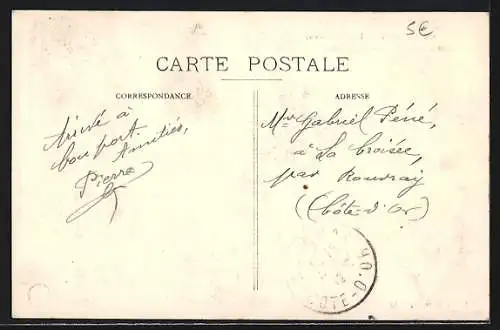 5€
CARTE POSTALE
CORRESPONDANCE
ADRESSE
Arrivé à
bon port.
Amitiés,
Pierre
Gabriel Péné,
à La Croisée,
par Rouvray
(Côte-d'Or)
CÔTE-D'OR